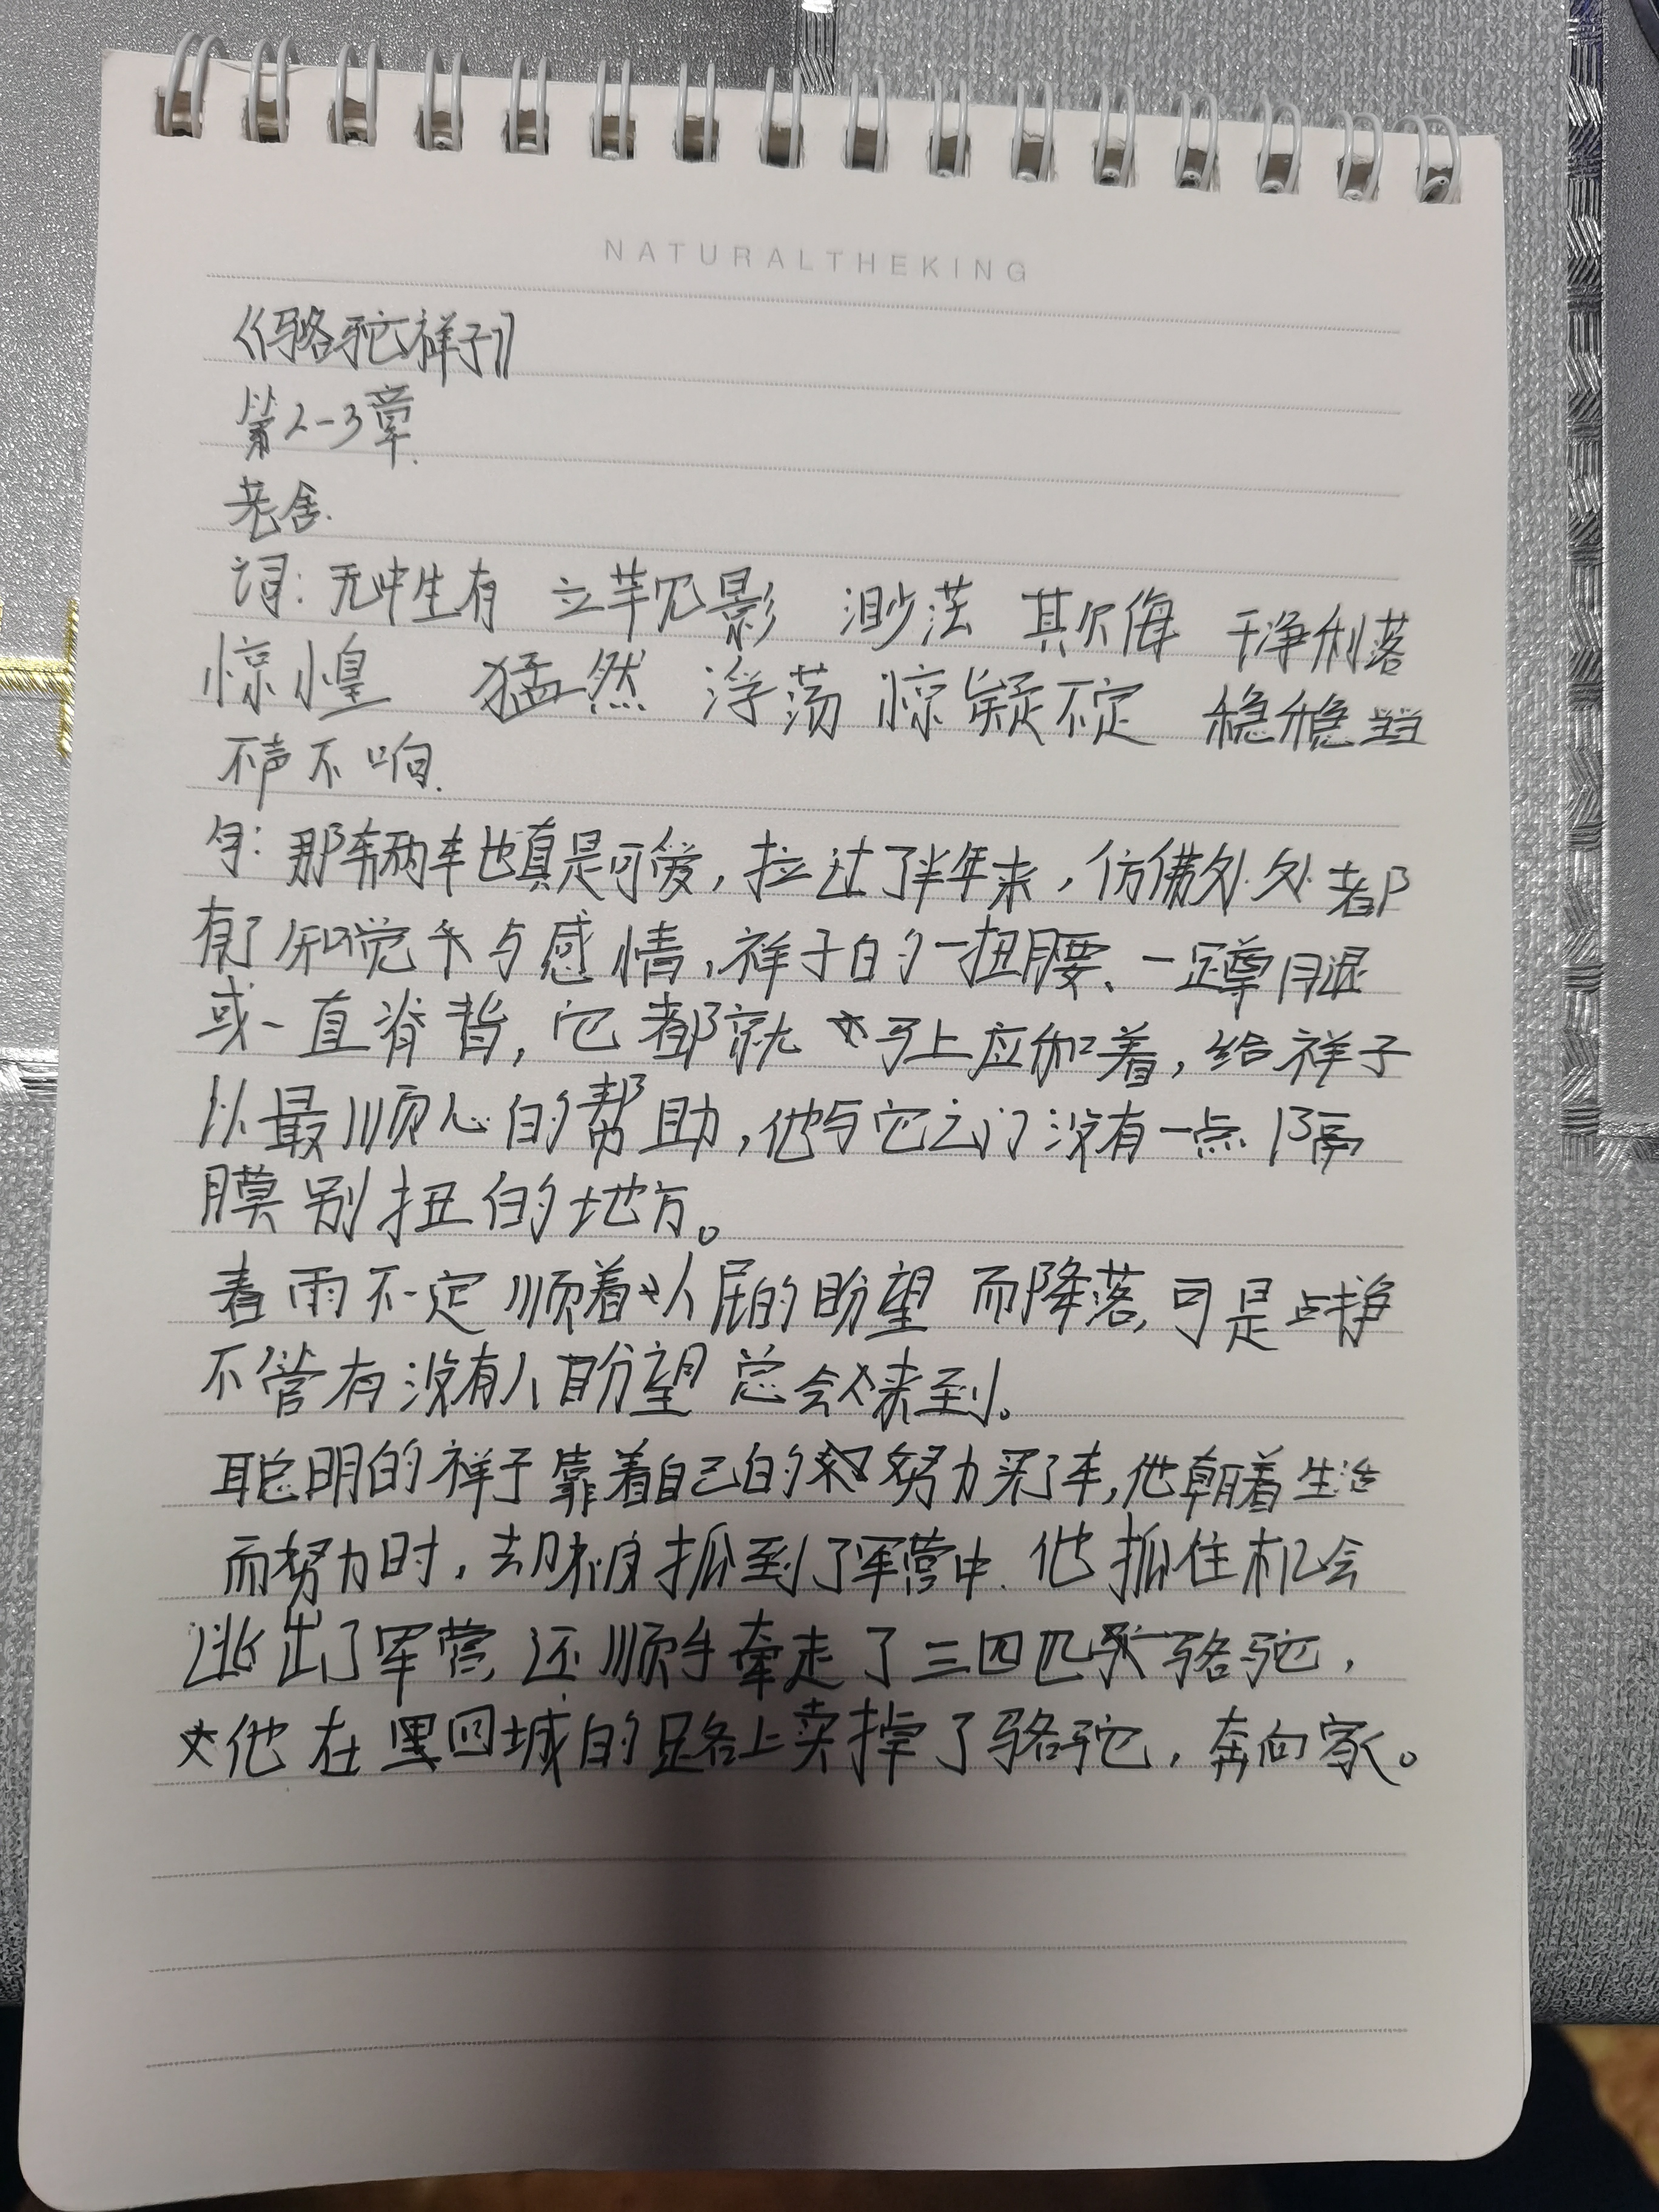 NATURALTHEKING
《骆驼祥子》
第2-3章.
老舍.
词：无中生有 立竿见影 渺茫 欺侮 干净利落
惊惶 猛然 浮荡 惊疑不定 稳稳当当
不声不响.
句：那辆车也真是可爱，拉过了半年来，仿佛处处都
有了知觉与感情，祥子的一扭腰、一蹲腿
或一直脊背，它都就马上应和着，给祥子
以最顺心的帮助，他与它之门没有一点隔
膜别扭的地方。
春雨不一定顺着人民的盼望而降落，可是战争
不管有没有人盼望总会来到。
聪明的祥子靠着自己的努力买了车，他朝着生活
而努力时，却被抓到了军营中.他抓住机会
逃出了军营，还顺手牵走了三四匹骆驼，
他在回城的路上卖掉了骆驼，奔向家。